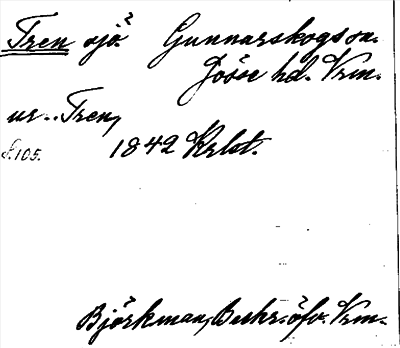 Tren sjö? Gunnarskogs sn.
Jösse hd. Vrm.
ur..Tren,
S.105. 1842 Krlst.
Björkman, Beskr. öfv. Vrm.